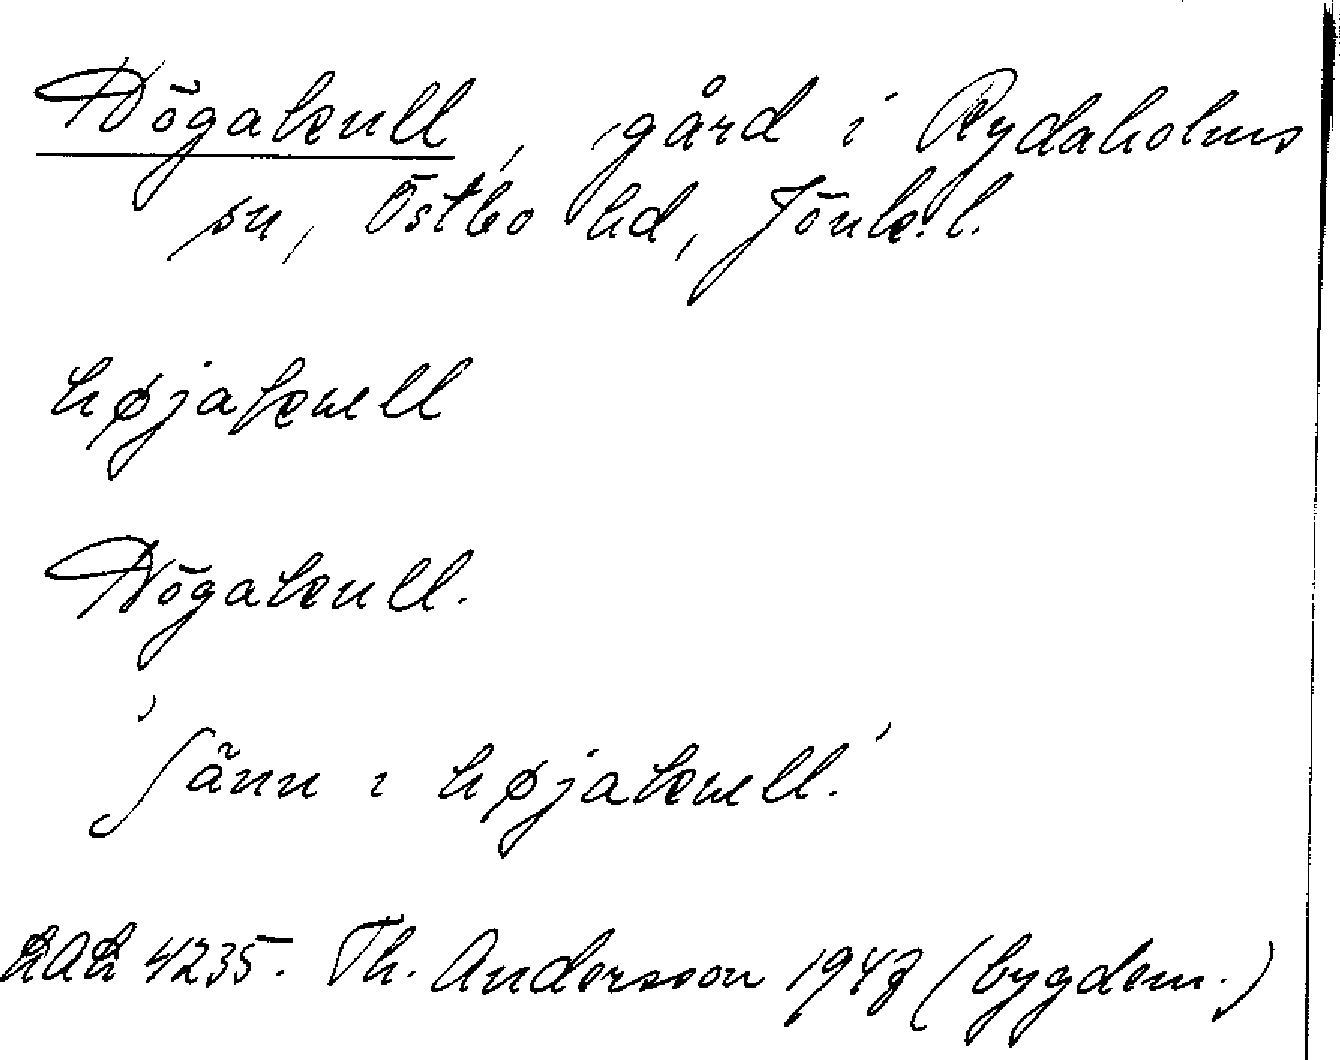 Högakull, gård i Rydaholms
sn, Östbo hd, Jönk. l.
højakull
Högakull.
'ʃänn ı højakull.'
LAL 4235. Th. Andersson 1947 (bygdem.)